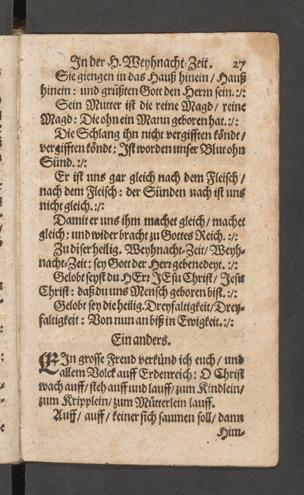 In der H. Weyhnacht-Zeit. 27
Sie giengen in das Hauß hinein / Hauß
hinein : und grüßten Gott den Herrn sein. :/:
Sein Mutter ist die reine Magd / reine
Magd : Die ohn ein Mann geboren hat. :/:
Die Schlang ihn nicht vergifften köndt /
vergifften köndt : Ist worden unser Blut ohn
Sünd. :/:
Er ist uns gar gleich nach dem Fleisch /
nach dem Fleisch : der Sünden nach ist uns
nicht gleich. :/:
Damit er uns ihm machet gleich / machet
gleich : und wider bracht zu Gottes Reich. :/:
Zu diser heilig. Weyhnacht-Zeit / Weyh-
nacht-Zeit : sey Gott der Herr gebenedeyt. :/:
Gelobt seyst du HErr JEsu Christ / Jesu
Christ : daß du uns Mensch geboren bist. :/:
Gelobt sey die heilig. Dreyfaltigkeit / Drey-
faltigkeit : Von nun an biß in Ewigkeit. :/:
Ein anders.
EIn grosse Freud verkünd ich euch / und
allem Volck auff Erdenreich : O Christ
wach auff / steh auff und lauff / zum Kindlein /
zum Kripplein / zum Mütterlein lauff.
Auff / auff / keiner sich saumen soll / dann
Him-